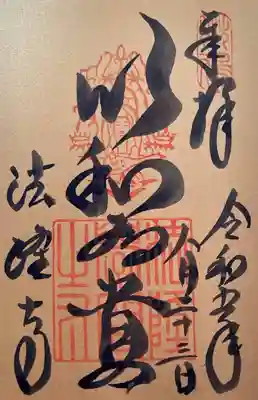 奉拝
令和五年
八月二十三日
以和為貴
法隆寺